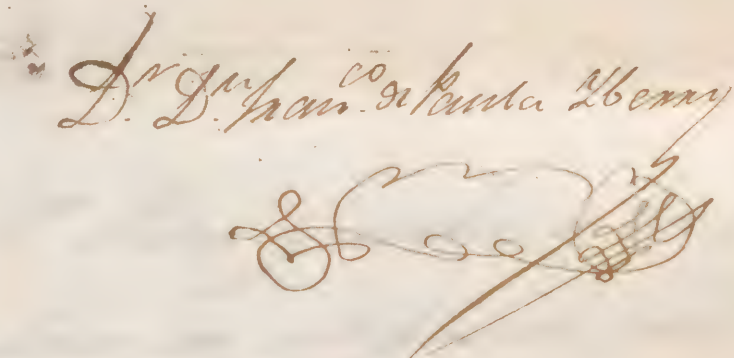 Dr. Dn. Franco. de Paula Yberry